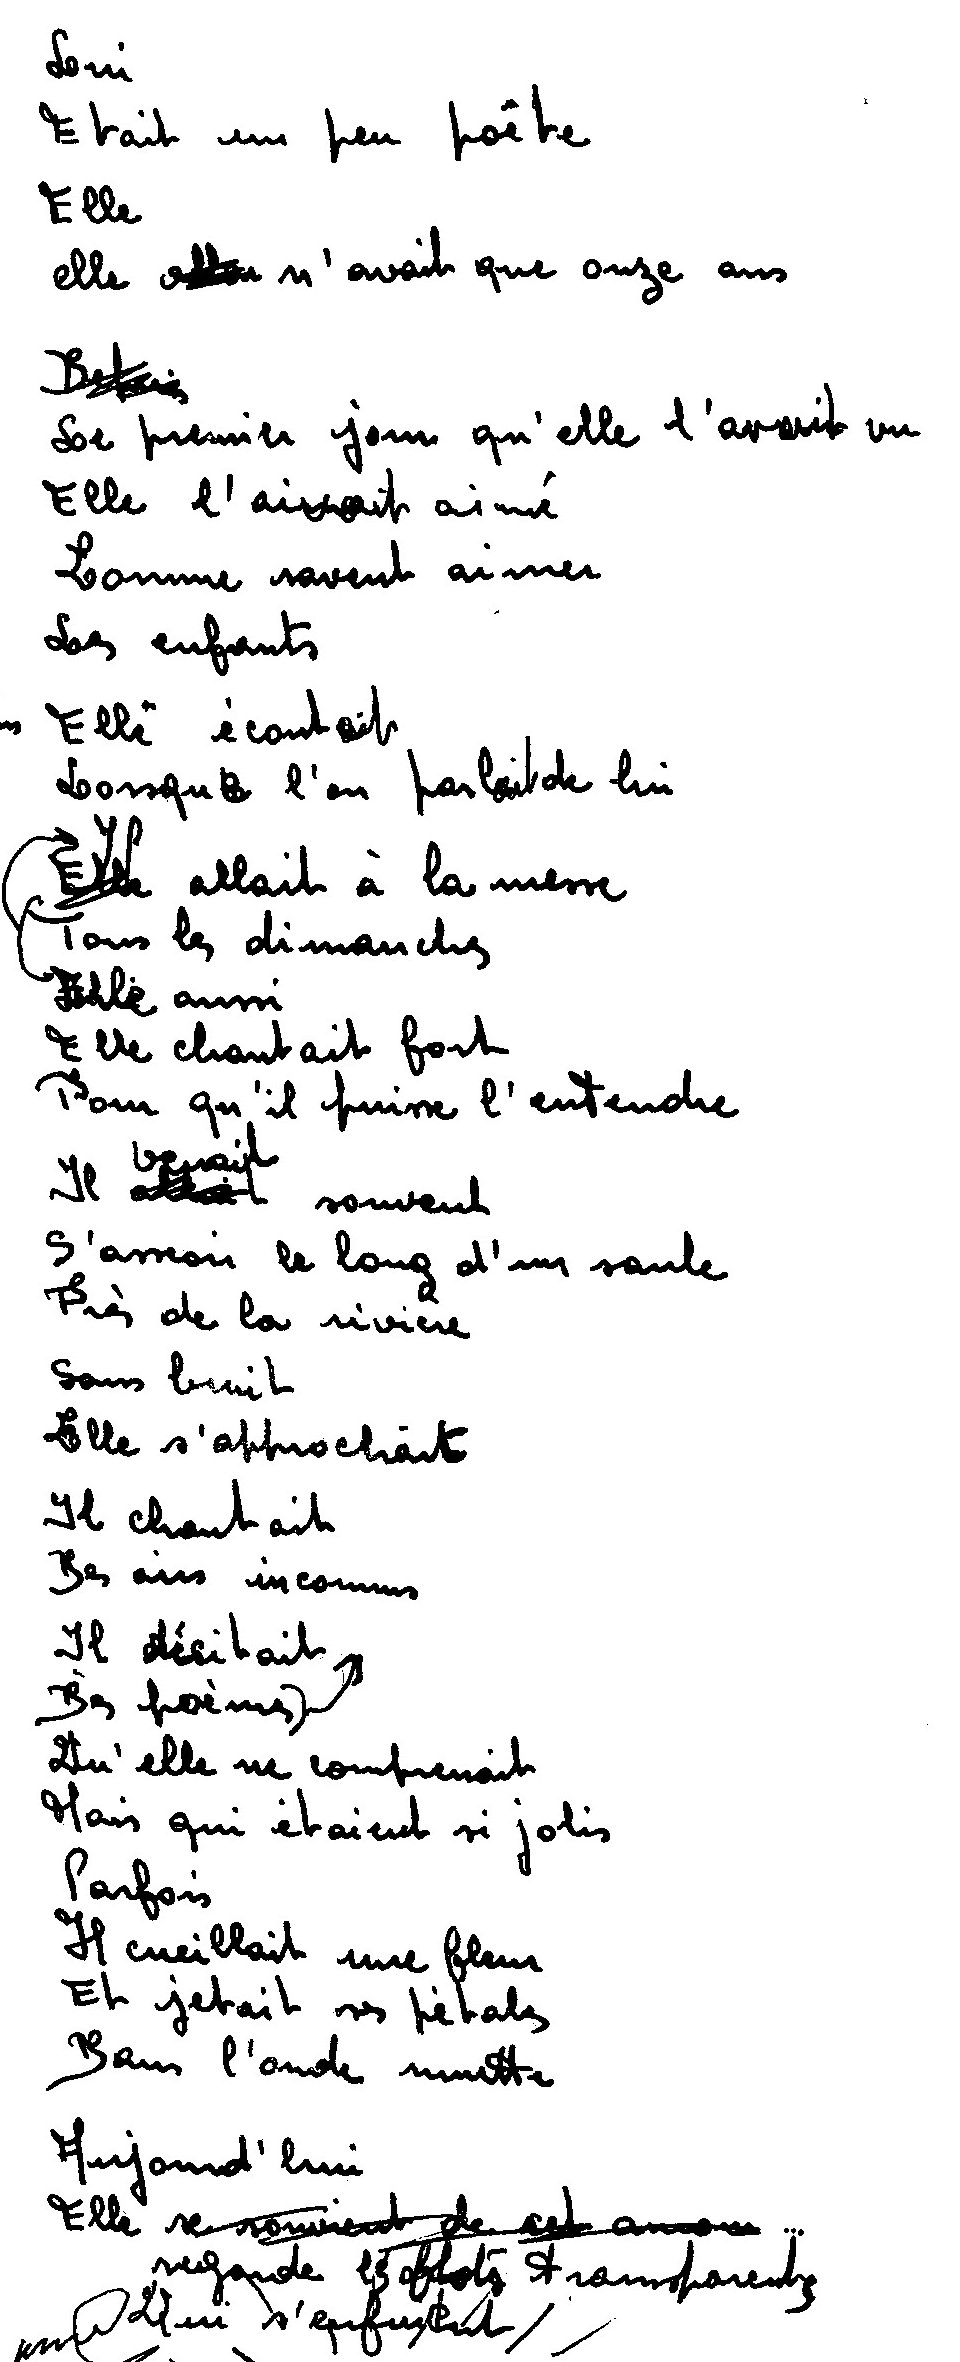 Lui
Etait un peu poête
Elle
elle n'avait que onze ans
Le premier jour qu'elle l'avait vu
Elle l'avait aimé
Comme savent aimer
Les enfants
Elle écoutait
Lorsque l'on parlait de lui
Il
allait à la messe
Tous les dimanches
Elle aussi
Elle chantait fort
Pour qu'il puisse l'entendre
venait
Il souvent
S'asseoir le long d'un saule
Près de la rivière
Sans bruit
Elle s'approchait
Il chantait
Des airs inconnus
Il récitait
Des poèmes
Qu'elle ne comprenait
Mais qui étaient si jolis
Parfois
Il cueillait une fleur
Et jetait ses pétales
Dans l'onde muette
Aujourd'hui
Elle se souvient de cet amour ...
regarde les flots transparents
Qui s'enfuient